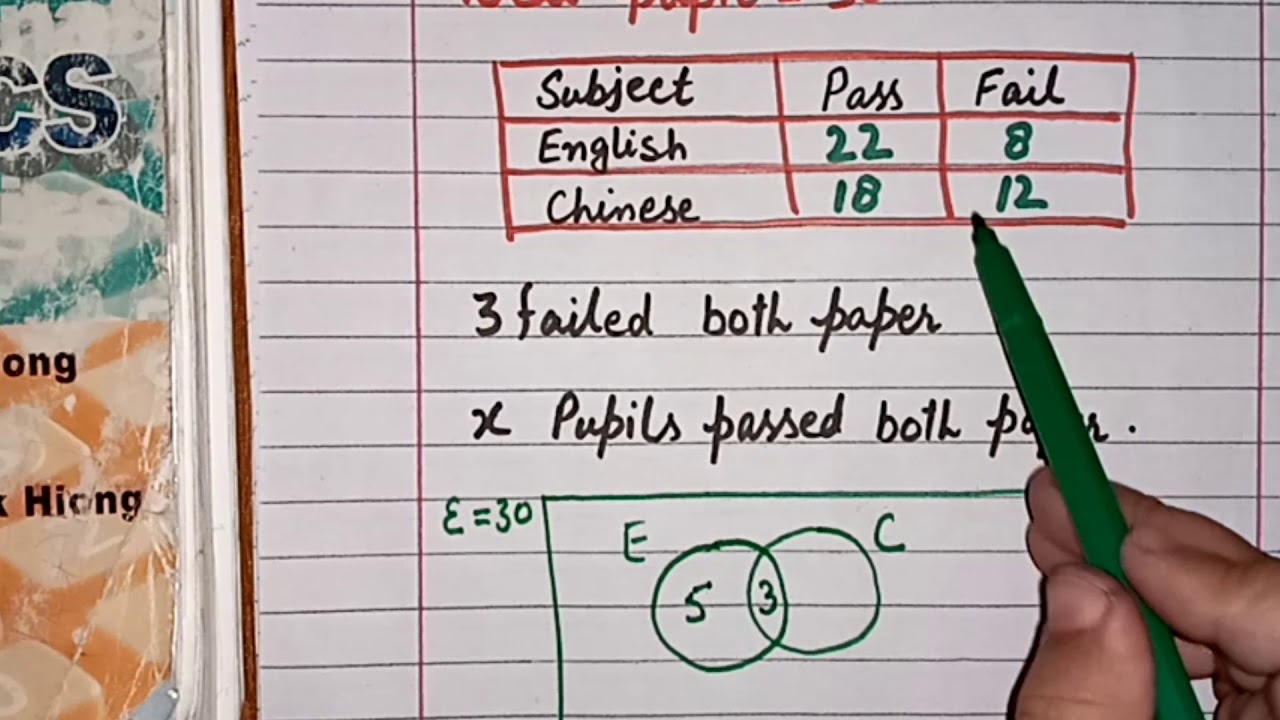 CS
ong
k Hiong
Subject Pass Fail
English 22 8
Chinese 18 12
3 failed both paper
x Pupils passed both
ε=30
E C
5 3